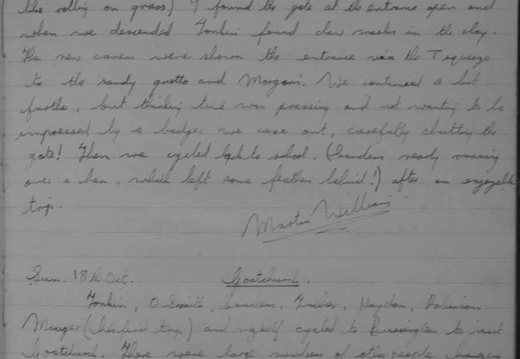 the valley on grass.) I found the gate at the entrance open and
when we descended Tonkin found claw marks in the clay.
The new cavers were shown the entrance via the T squeeze
to the sandy grotto and Morgan's. We continued a bit
further, but thinking time was pressing and not wanting to be
impressed by a badger we came out, carefully shutting the
gate! Then we cycled back to school. (Sanders nearly running
over a hen, which left some feathers behind!) after an enjoyable
trip.
Martin Williams
Sun. 18th Oct. Goatchurch.
Tonkin, O Smith, Sanders, Haydon, Robinson
Munger ( trip.) and myself cycled to Burrington to visit
Goatchurch. There were large numbers of other people